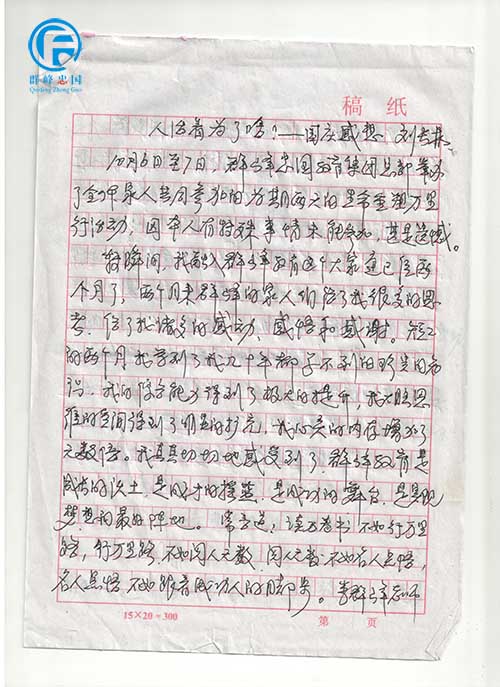 群峰忠国
Qunfeng Zhong Guo
稿 纸
人活着为了啥?——国庆感想 刘吉林
10月6日至7日,群峰忠国教育集团总部举办
了全体家人共同参加的为期两天的
行活动,因本人有特殊事情未能参加,甚是遗憾。
转瞬间,我融入群峰教育这个大家庭已经两
个月了,两个月来群峰的家人们给了我很多的思
考,给了我诸多的感动、感悟和感谢。短短
的两个月我学到了我几十年都学不到的
识,我的综合能力得到了极大的提升,我大脑思
维的空间得到了明显的扩充,我心灵的内存增加了
无数倍。我真真切切地感受到了,群峰教育是
成长的沃土,是成才的摇篮,是成功的舞台,是实现
梦想的最好阵地。常言道:读万卷书不如行万里
路,行万里路不如阅人无数,阅人无数不如名人点悟,
名人点悟不如跟着成功人的脚步。李群峰老师
15×20=300
第 页